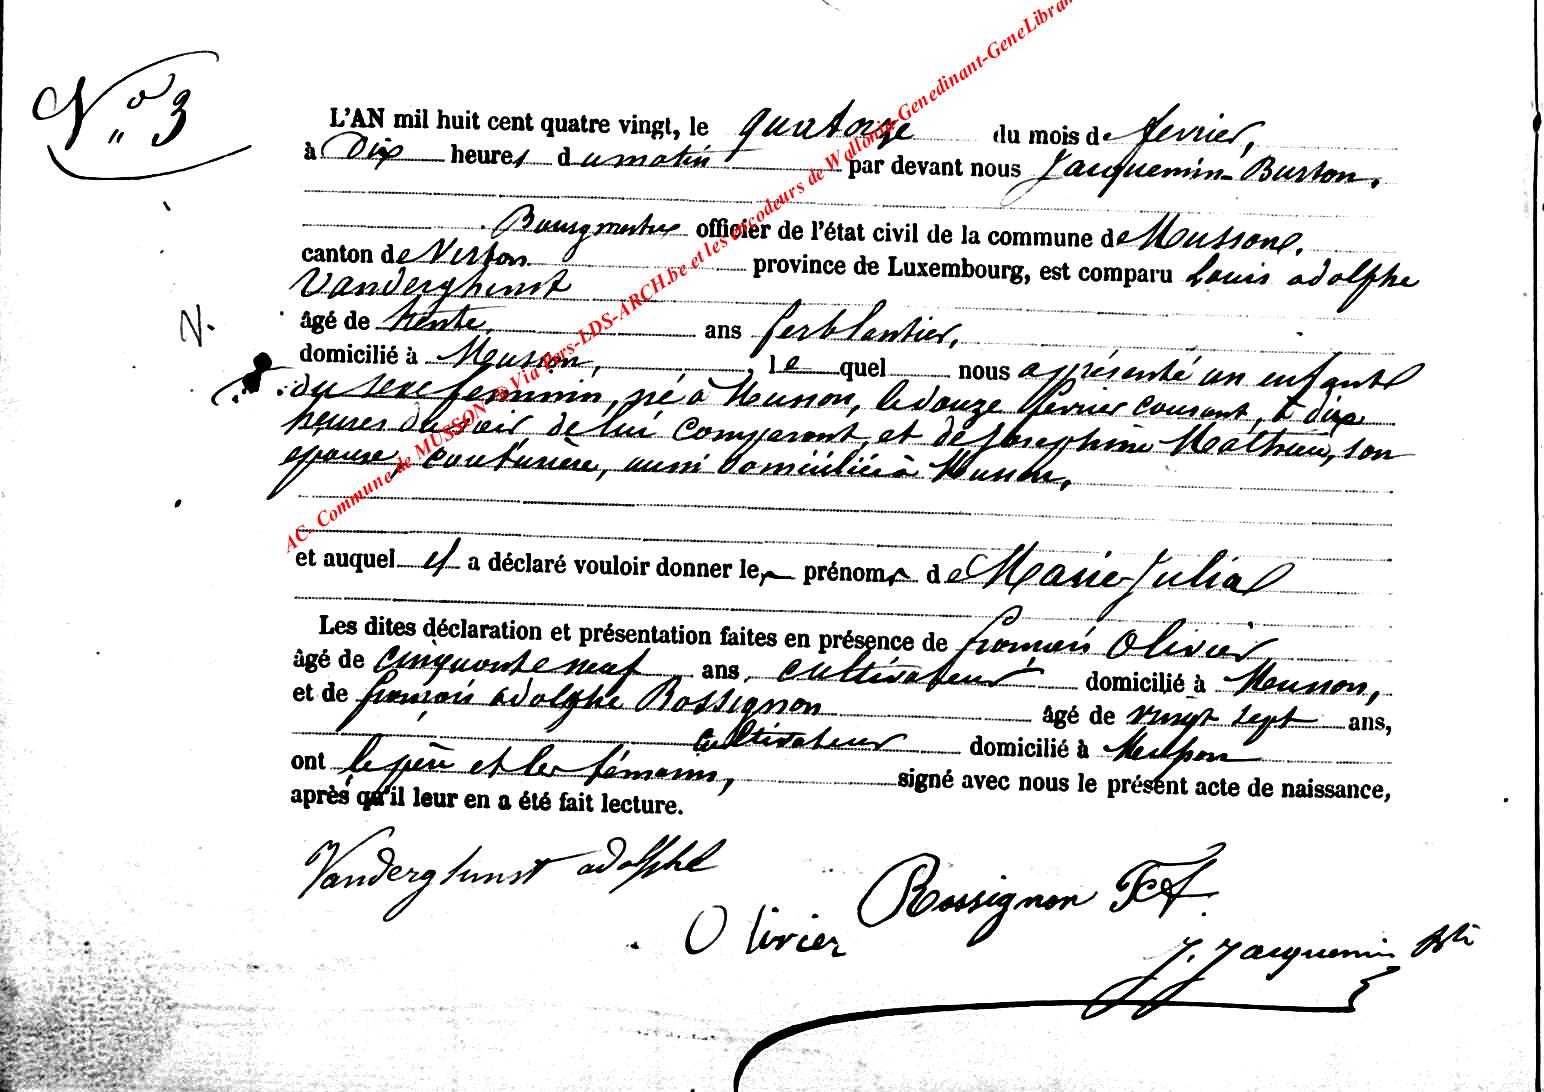 N° 3
L'AN mil huit cent quatre vingt, le quatorze du mois de fevrier,
à Dix heures du matin par devant nous Jacquemin-Burton.
Bourgmestre officier de l'état civil de la commune de Musson.
canton de Virton province de Luxembourg, est comparu Louis adolphe
Vanderghinst
âgé de trente, ans ferblantier,
N.
domicilié à Musson, lequel nous a présenté un enfant
du sexe feminin, né à Musson, le douze fevrier courant, à dix
heures du soir, de lui comparant, et de Josephine Mathieu, son
epouse, couturière, aussi domiciliée à Musson.
et auquel il a déclaré vouloir donner les prénoms de Marie-Julia
Les dites déclaration et présentation faites en présence de françois Olivier
âgé de cinquante neuf ans, cultivateur domicilié à Musson,
et de françois adolphe Rossignon âgé de vingt sept ans,
cultivateur domicilié à Musson
ont le père et les témoins, signé avec nous le présent acte de naissance,
après qu'il leur en a été fait lecture.
Vanderghinst adolphe
Rossignon
Olivier
J. Jacquemin
AC. Commune de MUSSON @ Via Pers-LDS-ARCH.be et les encodeurs de Wallonia-Genedinant-GeneLibran